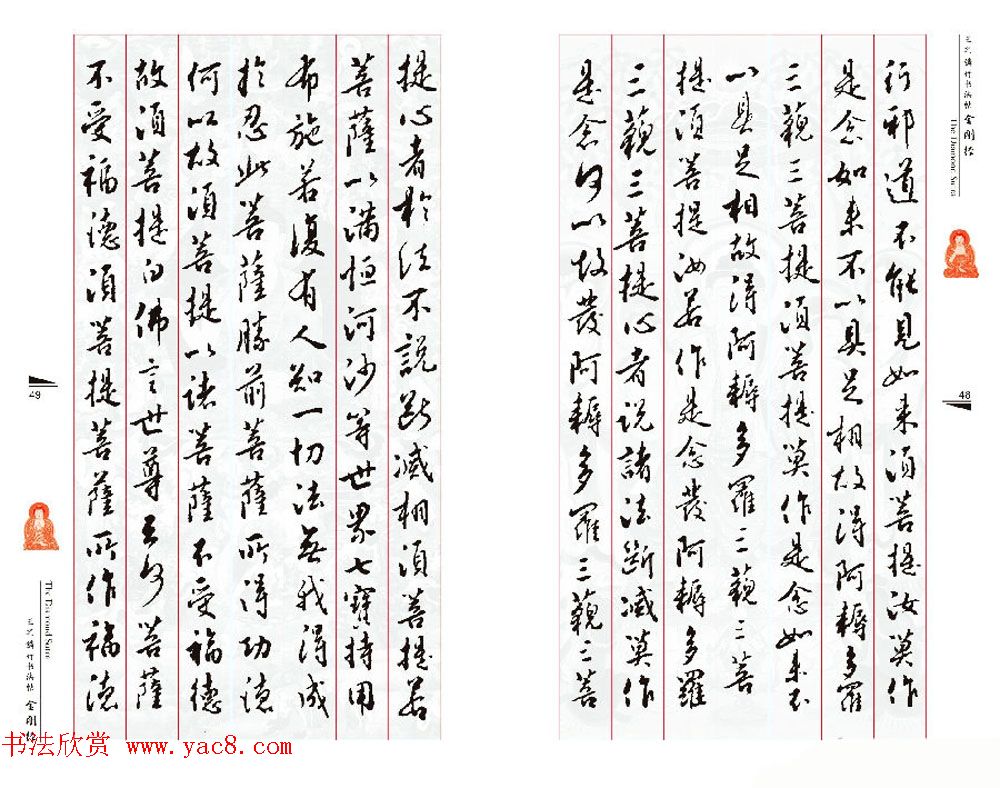 金刚经
The Diamond Sutra
48
行邪道不能見如来須菩提汝莫作
是念如来不以具足相故得阿耨多羅
三藐三菩提須菩提莫作是念如来不
以具足相故得阿耨多羅三藐三菩
提須菩提汝若作是念發阿耨多羅
三藐三菩提心者説諸法断滅莫作
是念何以故發阿耨多羅三藐三菩
提心者於法不説斷滅相須菩提若
菩薩以滿恒河沙等世界七寶持用
布施若復有人知一切法無我得成
於忍此菩薩勝前菩薩所得功德
何以故須菩提以諸菩薩不受福德
故須菩提白佛言世尊云何菩薩
不受福德須菩提菩薩所作福德
49
The Diamond Sutra
金刚经
书法欣赏 www.yac8.com